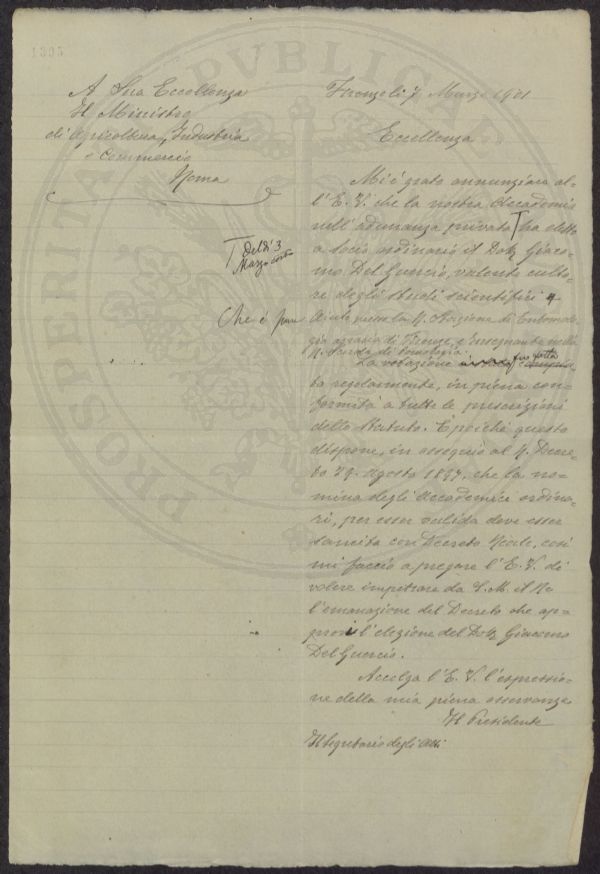 1393
A Sua Eccellenza
Il Ministro
di Agricoltura, Industria
e Commercio
Roma
Firenze li 7 Marzo 1901
Eccellenza
Mi è grato annunziare al-
l'E. V. che la nostra Accademia
nell'adunanza privata ⌈ ha eletto
⌈ del dì 3
Marzo corr.
a socio ordinario il Dott. Giaco-
mo Del Guercio, valente culto-
re degli studi scientifici e
Che è pure
Aiuto presso la R. Stazione di Entomolo-
gia agraria di Firenze, e Insegnante nella
R. Scuola di Pomologia.
La votazione fu fatta
regolarmente, in piena con-
formità a tutte le prescrizioni
dello Statuto. E poiché questo
dispone, in ossequio al R. Decre-
to 29 Agosto 1897, che la no-
mina degli Accademici ordina-
ri, per esser valida deve esser
sancita con Decreto Reale, così
mi faccio a pregare l'E. V. di
volere impetrare da S. M. il Re
l'emanazione del Decreto che ap-
provi l'elezione del Dott. Giacomo
Del Guercio.
Accolga l'E. V. l'espressio-
ne della mia piena osservanza
Il Presidente
Il Segretario degli Atti
PROSPERITATI PVBLICAE